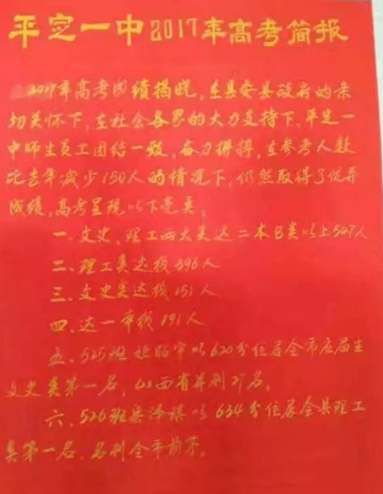 平定一中2017年高考简报
2017年高考成绩揭晓,在县委县政府的亲
切关怀下,在社会各界的大力支持下,平定一
中师生员工团结一致,奋力拼搏,在参考人数
比去年减少150人的情况下,仍然取得了优异
成绩,高考呈现以下亮点。
一、文史、理工两大类达二本B类以上547人
二、理工类达线396人
三、文史类达线151人
四、达一本线191人
五、525班 以620分位居全市应届生
文史类第一名,山西省并列27名。
六、526班 以634分位居全县理工
类第一名,名列全市前茅。